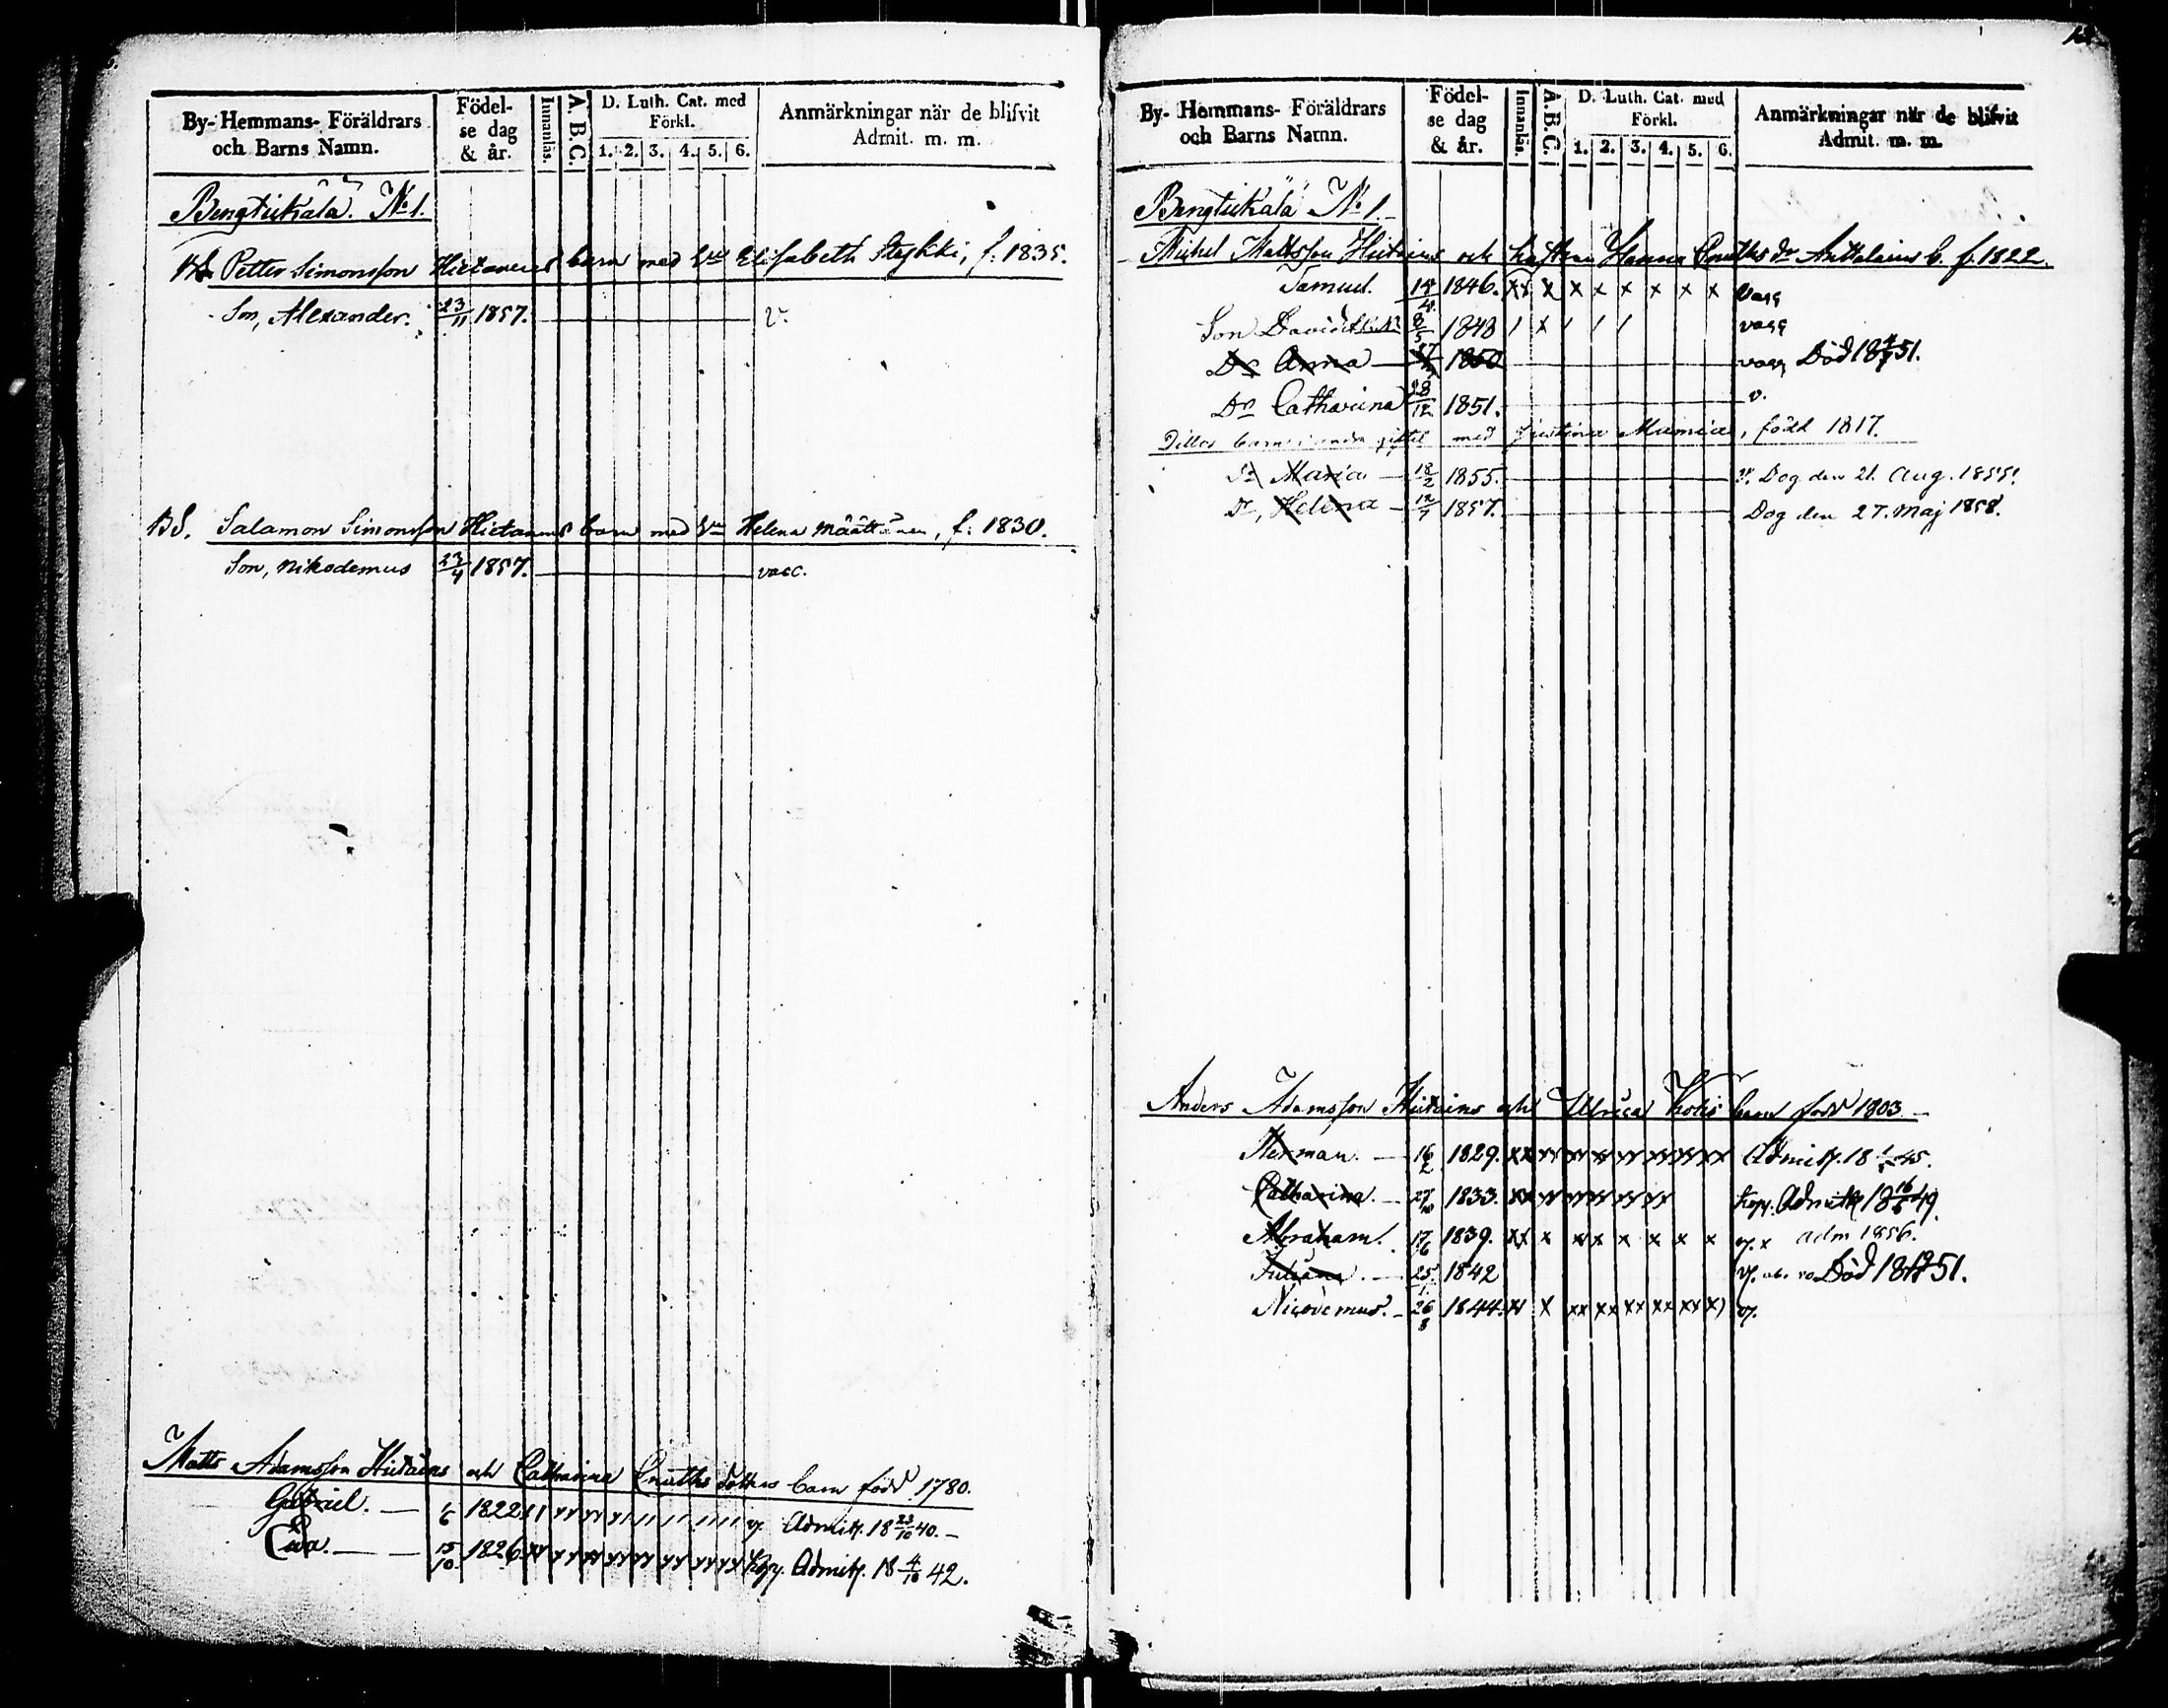 By- Hemmans- Föräldrars och Barns Namn. Födel-se dag & år. Innanläs. A. B. C. D. Luth. Cat. med Förkl. 1. 2. 3. 4. 5. 6. Anmärkningar när de blifvit Admit. m. m.
No 1.
Petter Simonsson Hietanens barn med Elisabeth f. 1835.
Son, Alexander. 23/11 1857. v.
BS. Salamon Simonsson Hietanens barn med Helena Määttänen, f. 1830.
Son, Nikodemus 23/4 1857. vacc.
Matts Adamsson och Catharina barn född 1780.
Gabriel. 6 1822 Admitt. 18 23/10 40.
Eva. 15/10 1826 xx Kopp. Admitt. 18 4/10 42.
By- Hemmans- Föräldrars och Barns Namn. Födel-se dag & år. Innanläs. A. B. C. D. Luth. Cat. med Förkl. 1. 2. 3. 4. 5. 6. Anmärkningar när de blifvit Admit. m. m.
No 1.
Michel Mattsson och hustrun Hanna b. f. 1822.
Samuel. 1846. xx x x x x x x x vacc
Son David 8/5 1848 / x / / / vacc
Dr Anna 1850 vacc Död 51.
Dr Catharina 28/12 1851. v.
barn i andra giftet med Justina född 1817.
Maria 18/2 1855. v. Dog den 21. Aug. 1855.
Dr, Helena 1857. Dog den 27. Maj 1858.
Anders Adamsson och Ulrica barn född 1803
Herman. 16/2 1829. xx Admitt. 18 45.
Catharina. 27/10 1833. xx Kopp. Admitt. 18 16/6 49.
Abraham. 17/6 1839. xx x xx x x x x x v. x adm 1856.
Juliana. 25/1 1842 v. Död 18 51.
Nicodemus. 26/8 1844. xx x xx xx xx xx xx x) v.